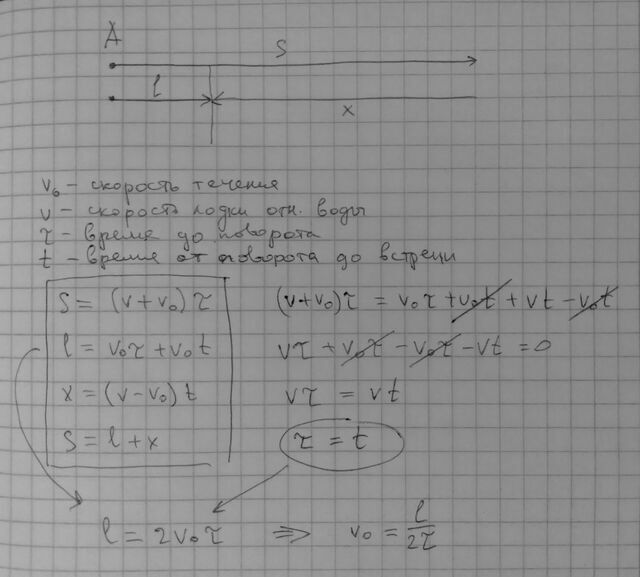 A
S
l
x
v₀ – скорость течения
v – скорость лодки отн. воды
τ – время до поворота
t – время от поворота до встречи
S = (v + v₀) τ
(v + v₀) τ = v₀ τ + v₀ t + v t – v₀ t
l = v₀ τ + v₀ t
v τ + v₀ τ – v₀ τ – v t = 0
x = (v – v₀) t
v τ = v t
S = l + x
τ = t
l = 2 v₀ τ ⇒ v₀ = l / 2τ